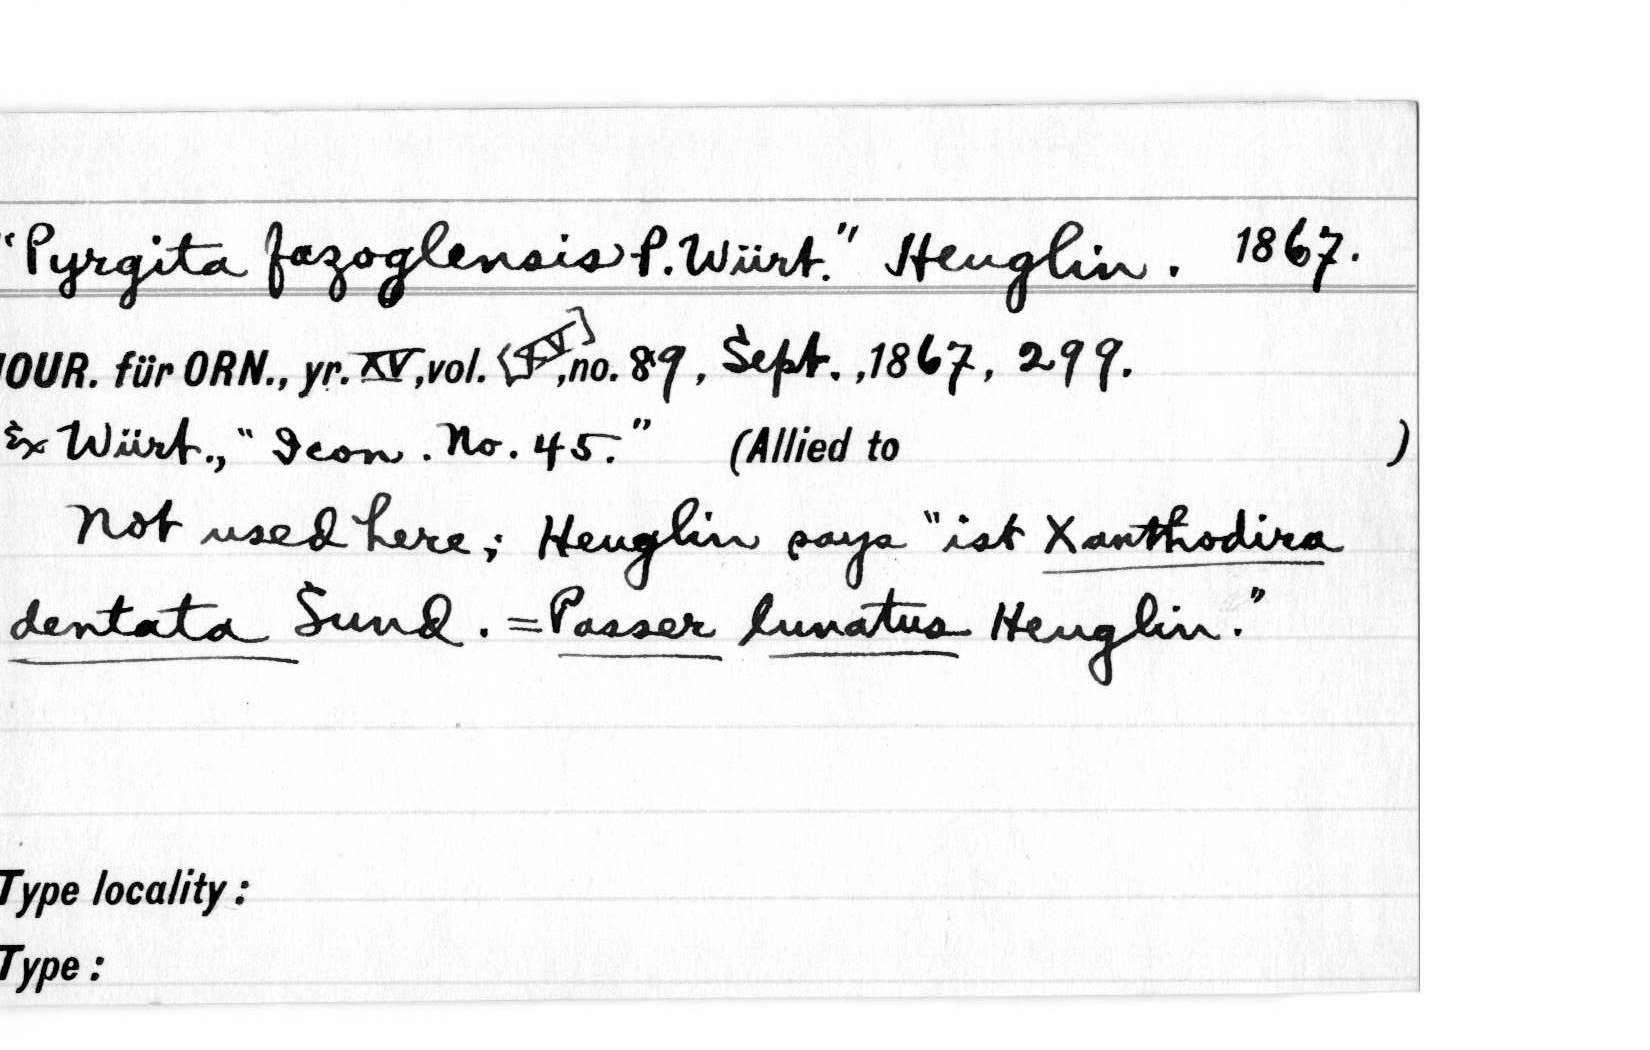 "Pyrgita fazoglensis P. Würt." Heuglin. 1867.
JOUR. für ORN., yr. XV, vol. [XV], no. 89, Sept., 1867, 299.
Ex Würt., "Icon. No. 45." (Allied to )
Not used here; Heuglin says "ist Xanthodira
dentata Sund. = Passer lunatus Heuglin."
Type locality:
Type: